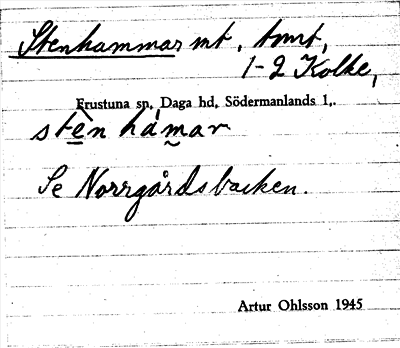 Stenhammar mt. tomt,
1-2 Kolke,
Frustuna sn, Daga hd, Södermanlands l,.
stèn hámar
Se Norrgårdsbacken.
Artur Ohlsson 1945